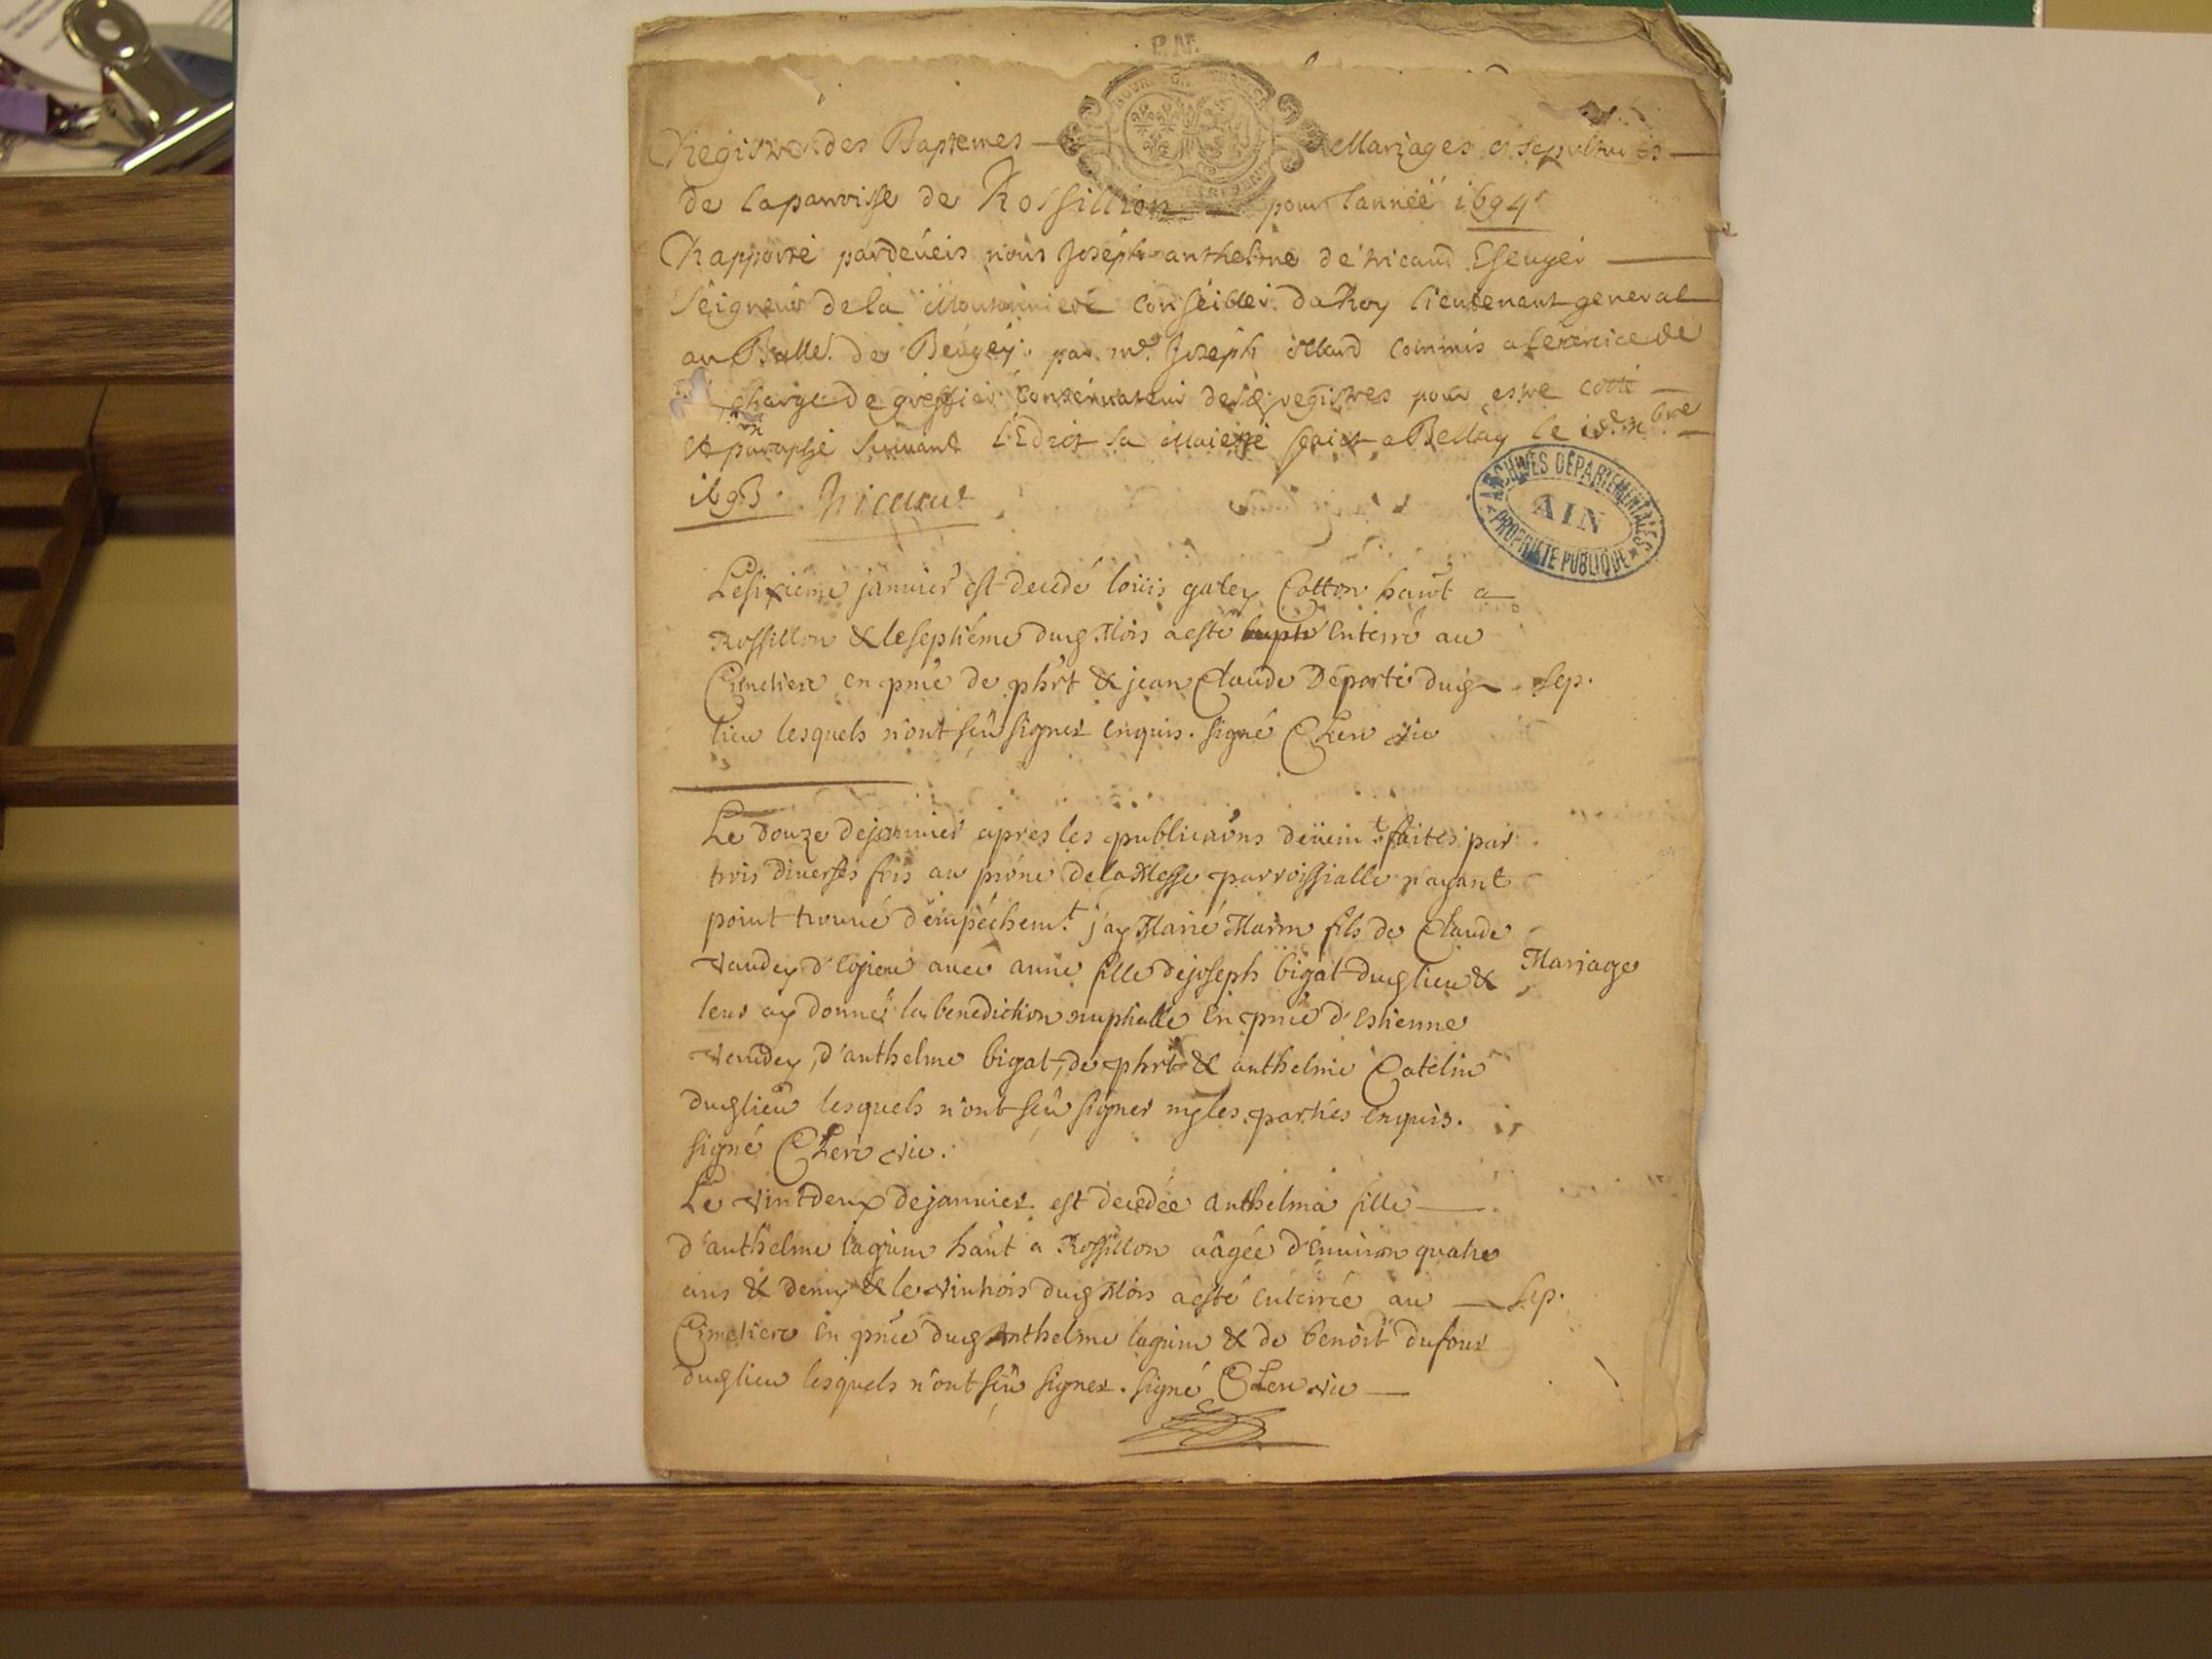 P.N.
Registre des Baptemes Mariages et sepultures
de la parroisse de Rossillion pour l'année 1694
Rapporté pardeveis nous Joseph anthelme de tricaud Escuyer
Seigneur de la Conseiller du Roy lieutenant general
au Balle. de Beugey par me Joseph commis a lexercice de
charge de greffier Conservateur desd. registres pour estre cotté
et paraphé suivant l'Edict sa Maiesté faict a Bellay le 18e 9bre
1693. tricaud
ARCHIVES DÉPARTEMENTALES
AIN
PROPRIÉTÉ PUBLIQUE
Le sixiéme janvier est decedé loüis galex Cotton hãnt a
Rossillon & le septiéme dud Mois a esté enterré au
Cimetiere en pñce de phrt & jean Claude Departé dud Sep.
lieu lesquels n'ont sçû signer enquis. signé Clerc vic
Le douze de janvier apres les publicaõns deüemt. faites par
trois diverses fois au prône de la Messe parroissialle n'ayant
point trouvé d'empéchemt. j'ay Marié Marin fils de Claude
vaudey d'Egieu avec anne fille de joseph bigat dud lieu & Mariage
leur ay donné la benediction nuptialle en pñce d'estienne
vaudey, d'anthelme bigat, de phrt & anthelme Catelin
dud lieu lesquels n'ont sçû signer ny les parties enquis.
signé Clerc vic.
Le vint deux de janvier est decedée anthelma fille
d'anthelme lagrim hãnt a Rossillon aâgée d'environ quatre
ans & demy & le vintrois dud Mois a esté enterrée au Sep.
Cimetiere en pñce dud Anthelme lagrim & de benoit dufour
dud lieu lesquels n'ont sçû signer. signé Clerc vic